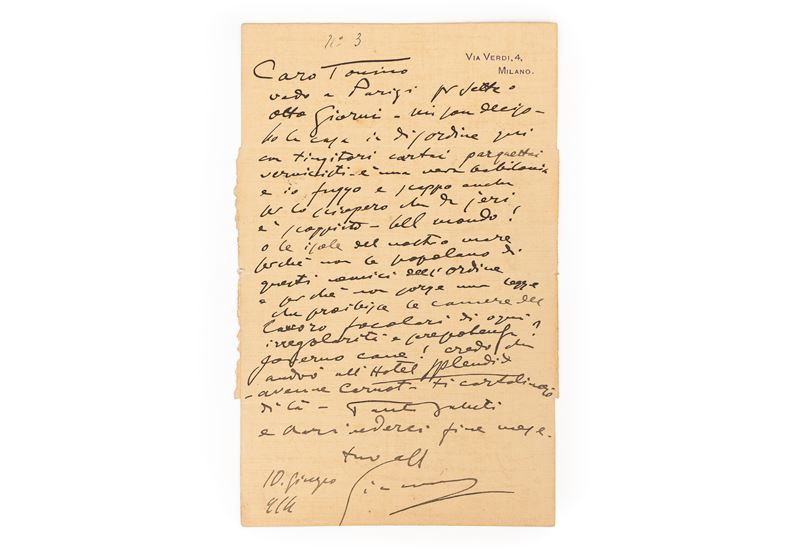 No 3
VIA VERDI, 4,
MILANO.
Caro Tonino
vado a Parigi per sette o
otto Giorni - mi son deciso -
ho la casa in disordine qui
con tingitori cartai parquettai
vernicisti - è una vera babilonia
e io fuggo e scappo anche
per lo sciopero che da jeri
è scoppiato - bel mondo!
o le isole del nostro mare
perchè non le popolano di
questi nemici dell'ordine
e perchè non sorge una legge
che proibisca le camere del
lavoro focolari di ogni
irregolarità e prepotenza!
governo cane! credo che
andrò all'Hotel Splendid
- avenue Carnot - ti cartolineggio
di là - Tanti saluti
e a rivederci fine mese -
tuo aff
10. Giugno